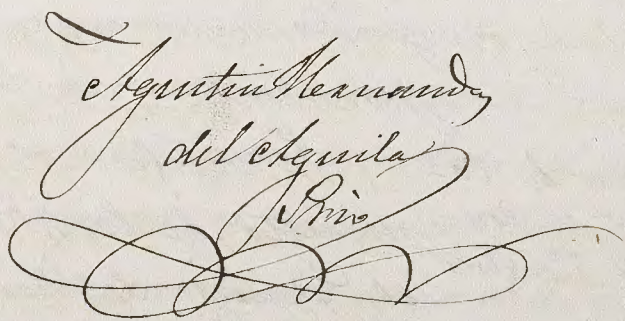 Agustin Hernandez
del Aguila